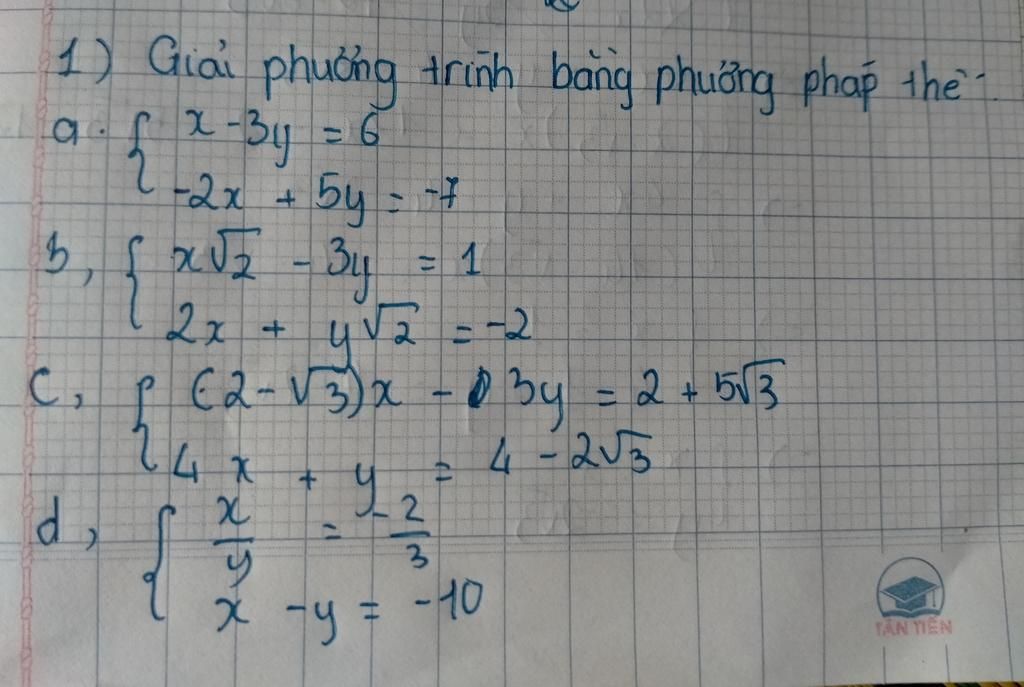 1) Giải phương trình bằng phương pháp thế.
a. { x - 3y = 6
-2x + 5y = -7
b, { x√2 - 3y = 1
2x + y√2 = -2
c, { (2 - √3)x - 3y = 2 + 5√3
4x + y = 4 - 2√3
d, { x/y = -2/3
x - y = -10
TÂN TIẾN